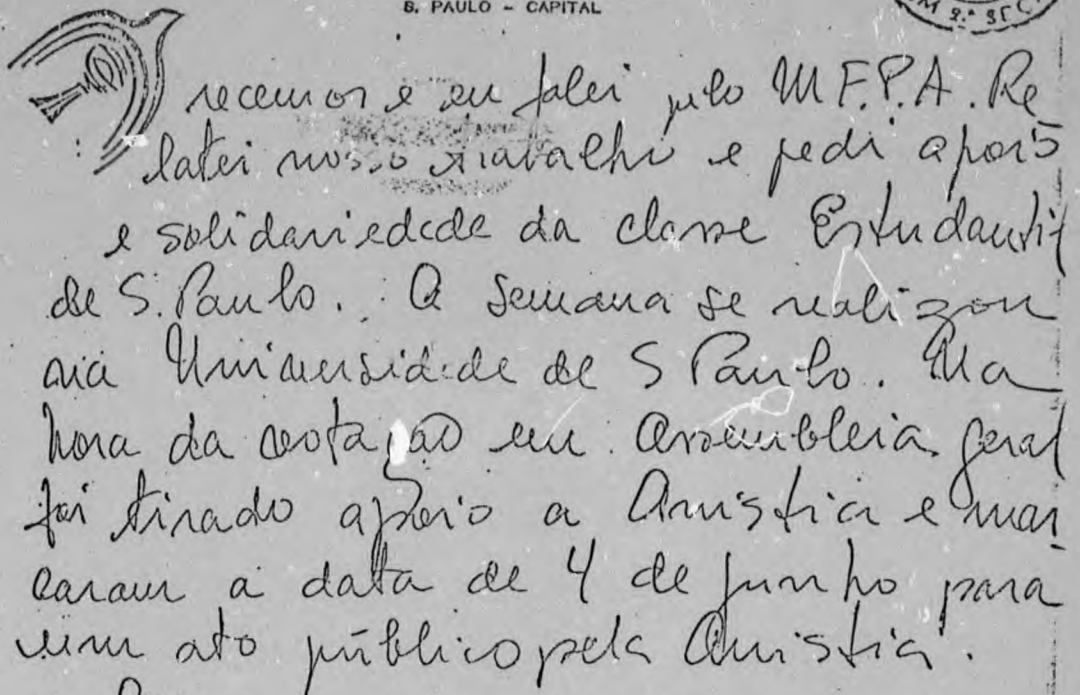 S. PAULO - CAPITAL
M 2.ª SEC
recemos e eu falei pelo M.F.P.A. Re
latei nosso trabalho e pedi apoio
e solidariedade da classe Estudantil
de S. Paulo. A semana se realizou
na Universidade de S Paulo. Na
hora da votação em assembleia geral
foi tirado apoio a Anistia e mar
caram a data de 4 de junho para
um ato público pela Anistia.